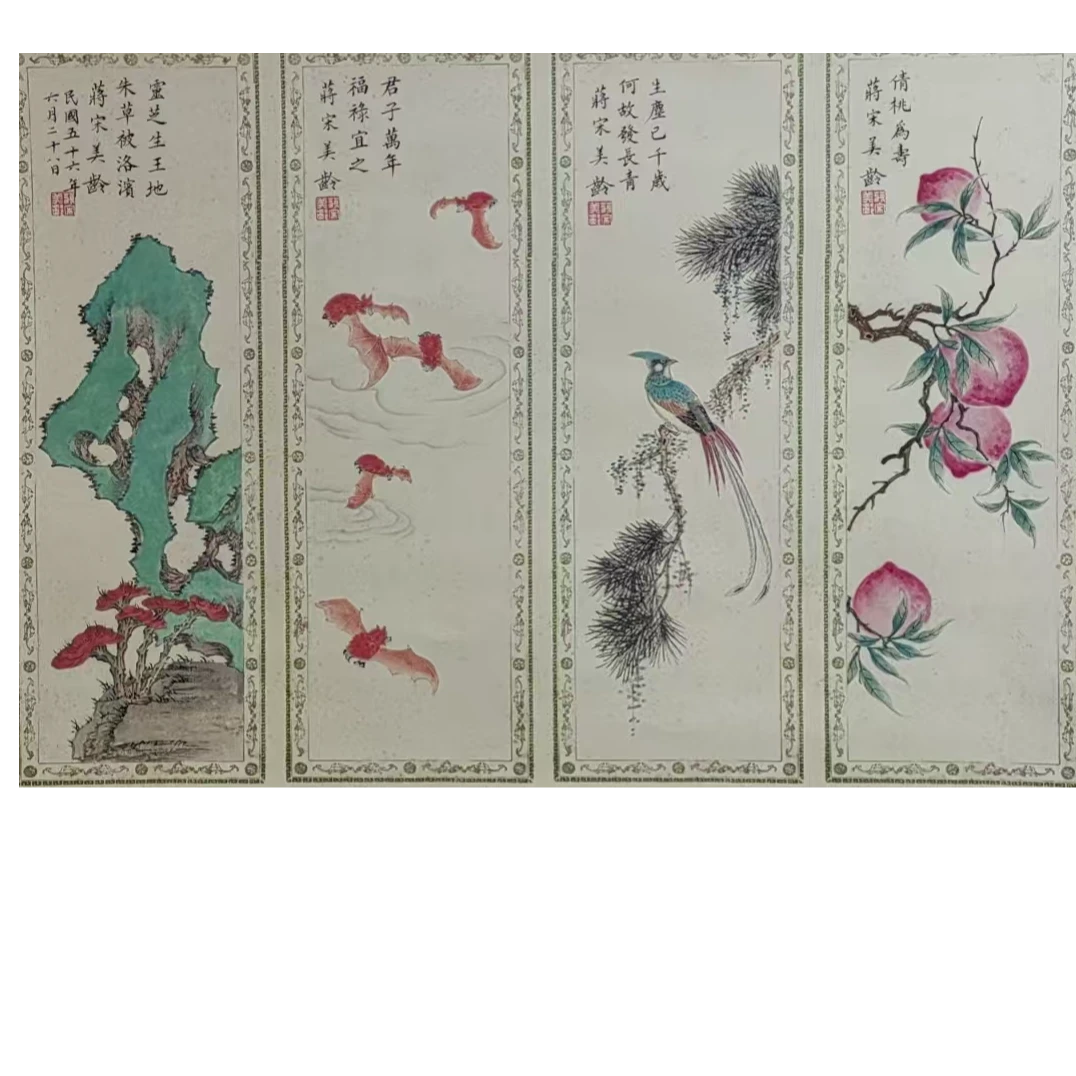 倩桃爲壽
蔣宋美齡
生塵已千歲
何故發長青
蔣宋美齡
君子萬年
福祿宜之
蔣宋美齡
靈芝生王地
朱草被洛濱
蔣宋美齡
民國五十六年
六月二十八日